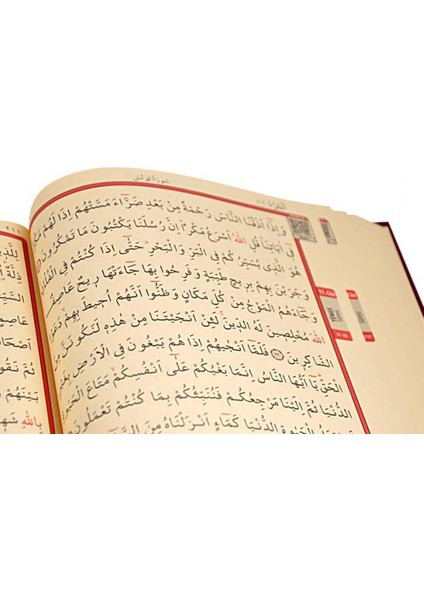 سُورَةُ يُونُسَ
اَلْجُزْءُ ١١
وَاِذَٓا اَذَقْنَا النَّاسَ رَحْمَةً مِنْ بَعْدِ ضَرَّٓاءَ مَسَّتْهُمْ اِذَا لَهُمْ
فٓي اٰيَاتِنَا قُلِ اللّٰهُ اَسْرَعُ مَكْرًا اِنَّ رُسُلَنَا يَكْتُبُونَ مَا تَمْكُرُونَ
هُوَ الَّذٖي يُسَيِّرُكُمْ فِي الْبَرِّ وَالْبَحْرِ حَتّٰٓى اِذَا كُنْتُمْ فِي الْفُلْكِ
وَجَرَيْنَ بِهِمْ بِرٖيحٍ طَيِّبَةٍ وَفَرِحُوا بِهَا جَٓاءَتْهَا رٖيحٌ عَاصِفٌ
وَجَٓاءَهُمُ الْمَوْجُ مِنْ كُلِّ مَكَانٍ وَظَنُّٓوا اَنَّهُمْ اُحٖيطَ بِهِمْ
اللّٰهَ مُخْلِصٖينَ لَهُ الدّٖينَ لَئِنْ اَنْجَيْتَنَا مِنْ هٰذِهٖ لَنَكُونَنَّ مِنَ
الشَّاكِرٖينَ ﴿٢٢﴾ فَلَمَّٓا اَنْجٰيهُمْ اِذَا هُمْ يَبْغُونَ فِي الْاَرْضِ بِغَيْرِ
الْحَقِّ يَٓا اَيُّهَا النَّاسُ اِنَّمَا بَغْيُكُمْ عَلٰٓى اَنْفُسِكُمْ مَتَاعَ الْحَيٰوةِ
الدُّنْيَا ثُمَّ اِلَيْنَا مَرْجِعُكُمْ فَنُنَبِّئُكُمْ بِمَا كُنْتُمْ تَعْمَلُونَ
الْحَيٰوةِ الدُّنْيَا كَمَٓاءٍ اَنْزَلْنَاهُ مِنَ
لِلَّذٖينَ
ذِلَّةٌ
عَاصِمٍ
اَصْحَابُ
ثُمَّ نَقُولُ
بَيْنَهُمْ
بِاللّٰهِ